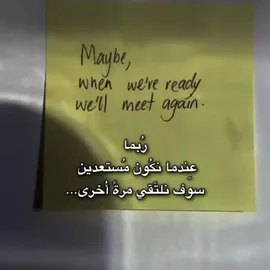 Maybe,
when we're ready
we'll meet again.
رُبما
عِندما نكُون مُستعدين
سوف نلتَقي مرةً أخرى...